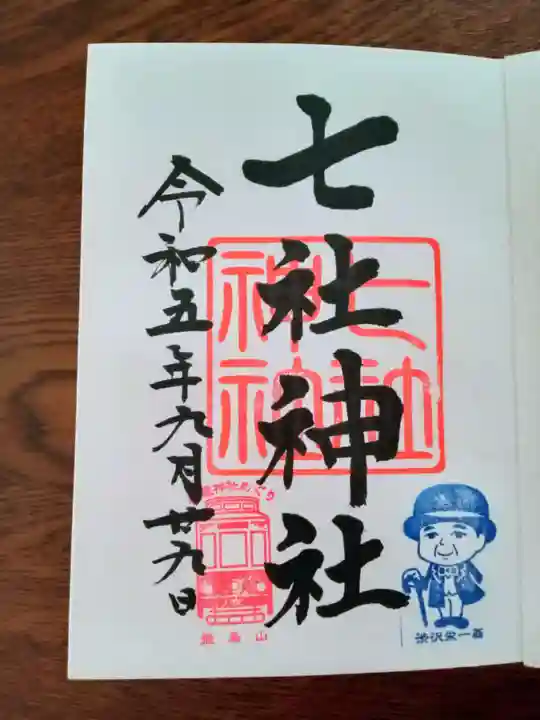 七社神社
七社
神社
令和五年九月廿九日
神社めぐり
飛鳥山
渋沢栄一翁